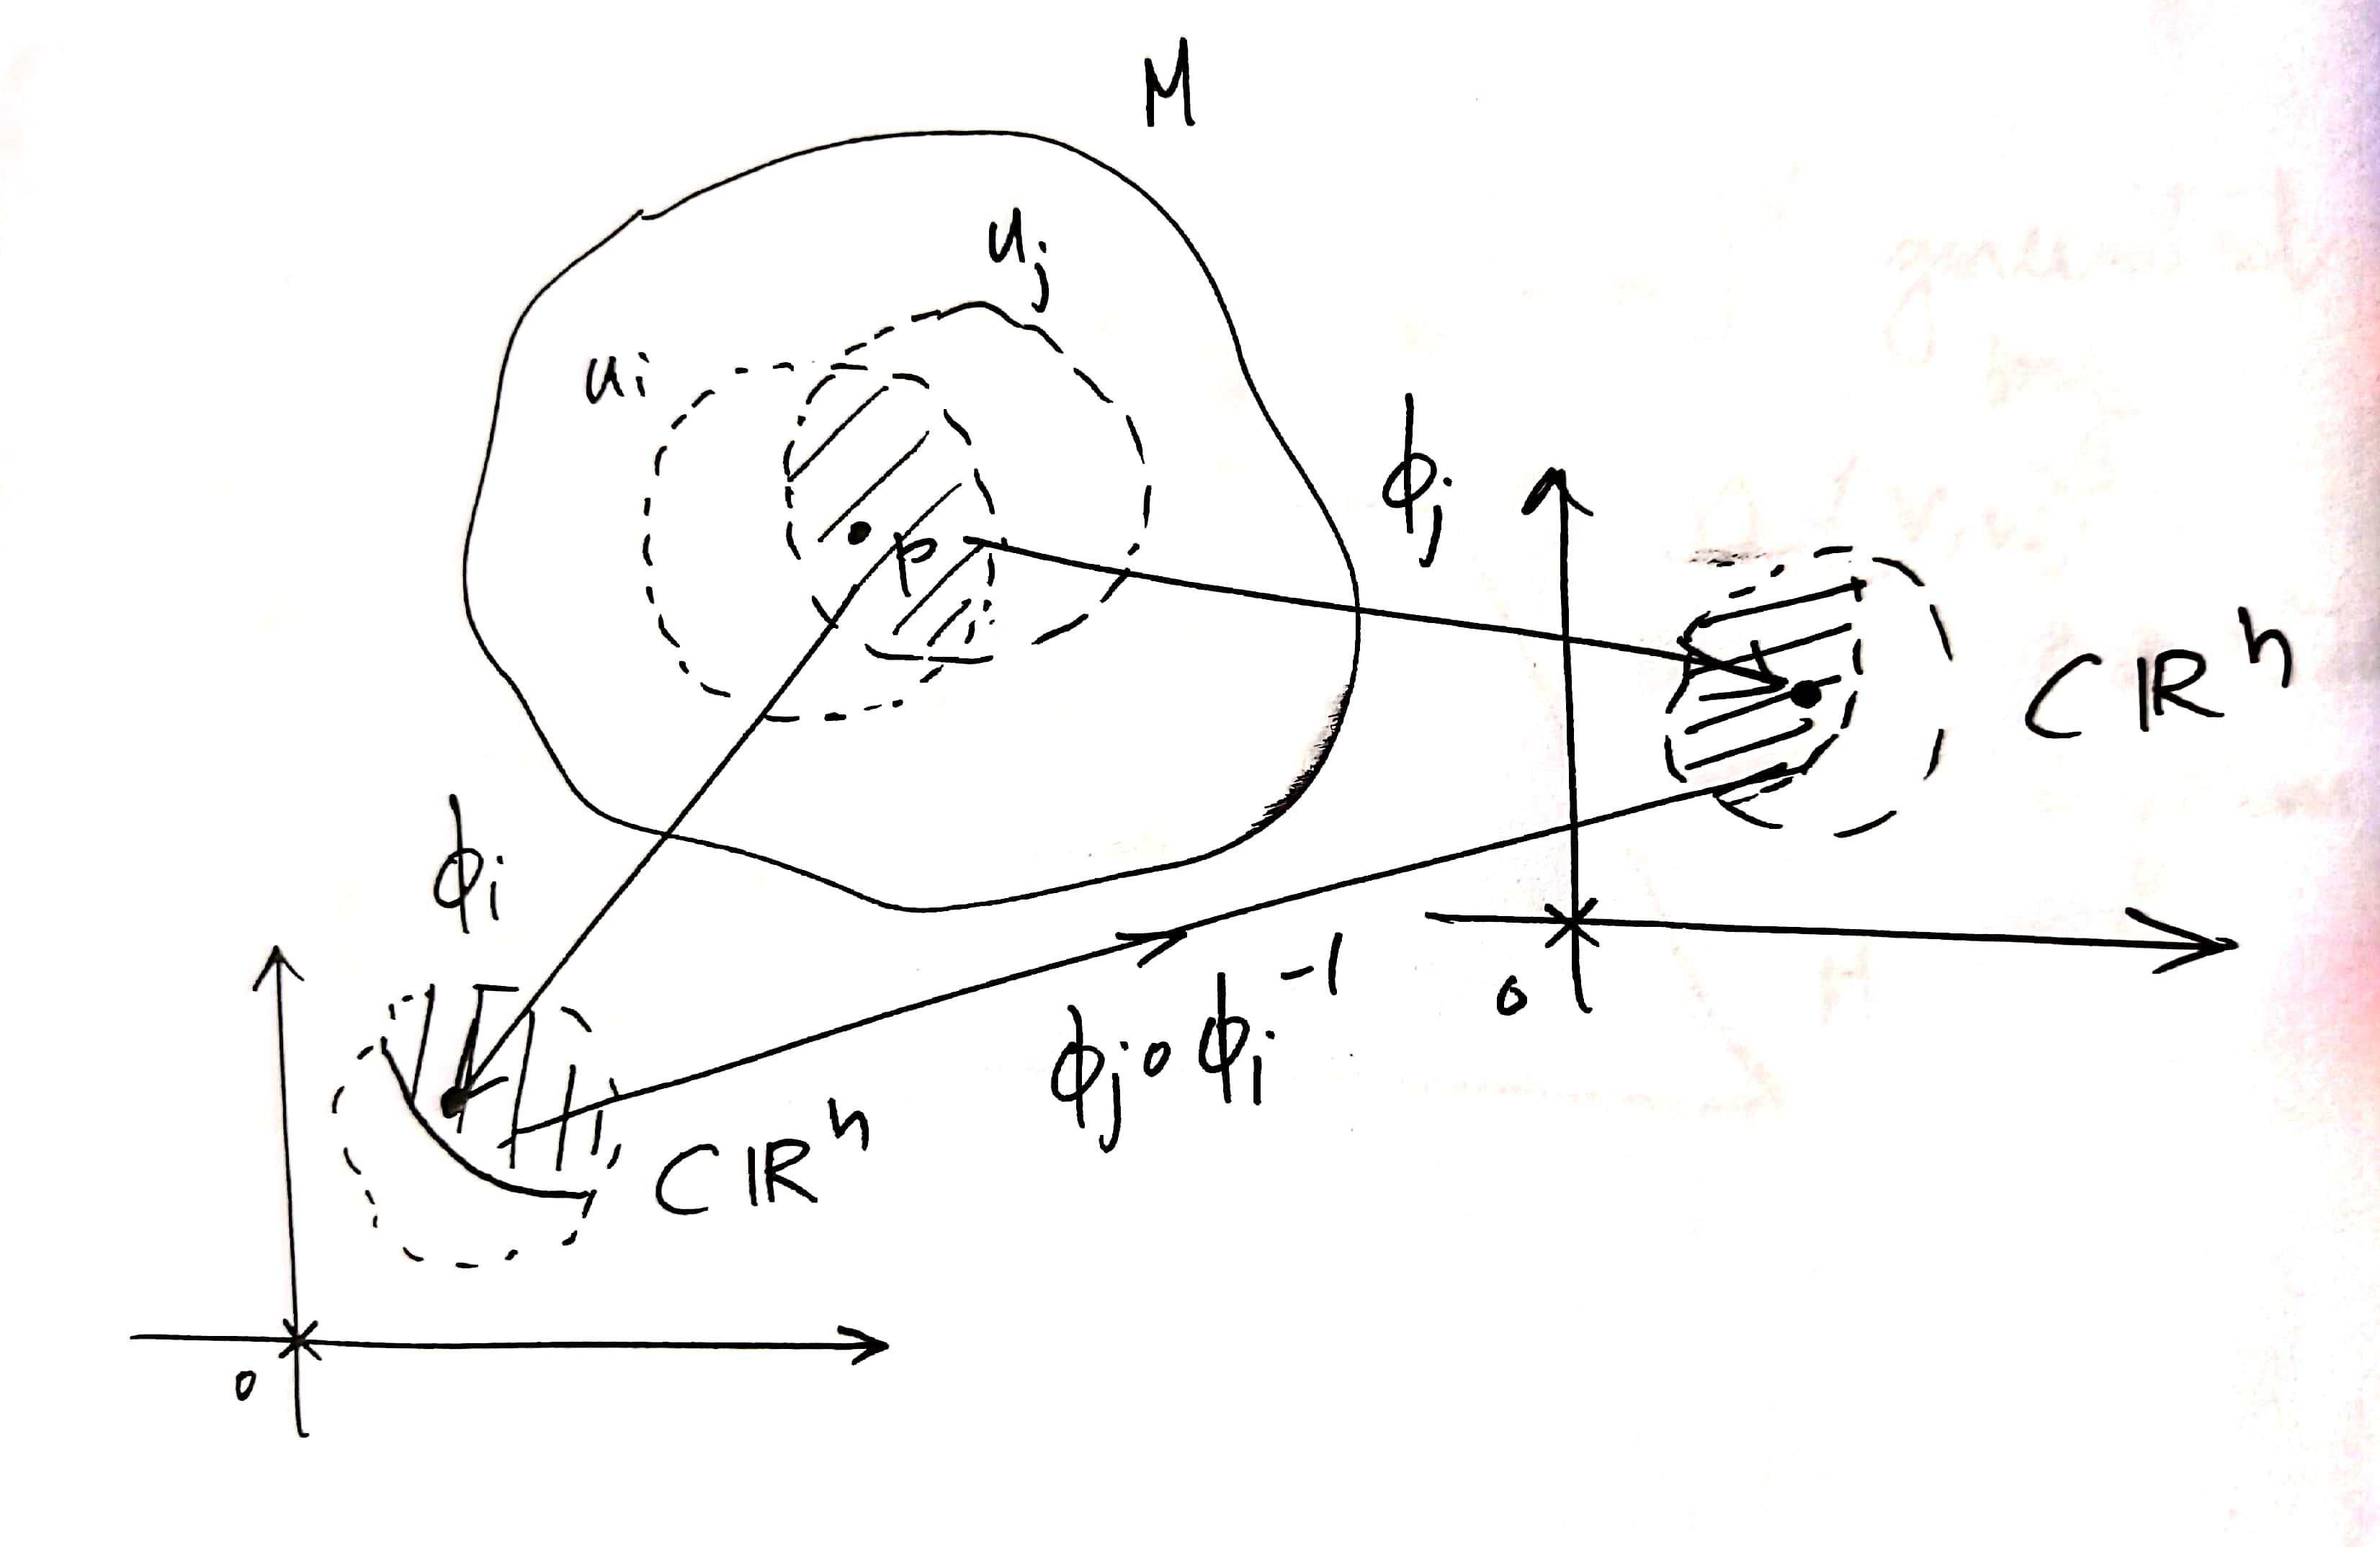 M
U_j
U_i
p
ϕ_j
⊂ ℝⁿ
ϕ_i
ϕ_j ∘ ϕ_i⁻¹
0
⊂ ℝⁿ
0